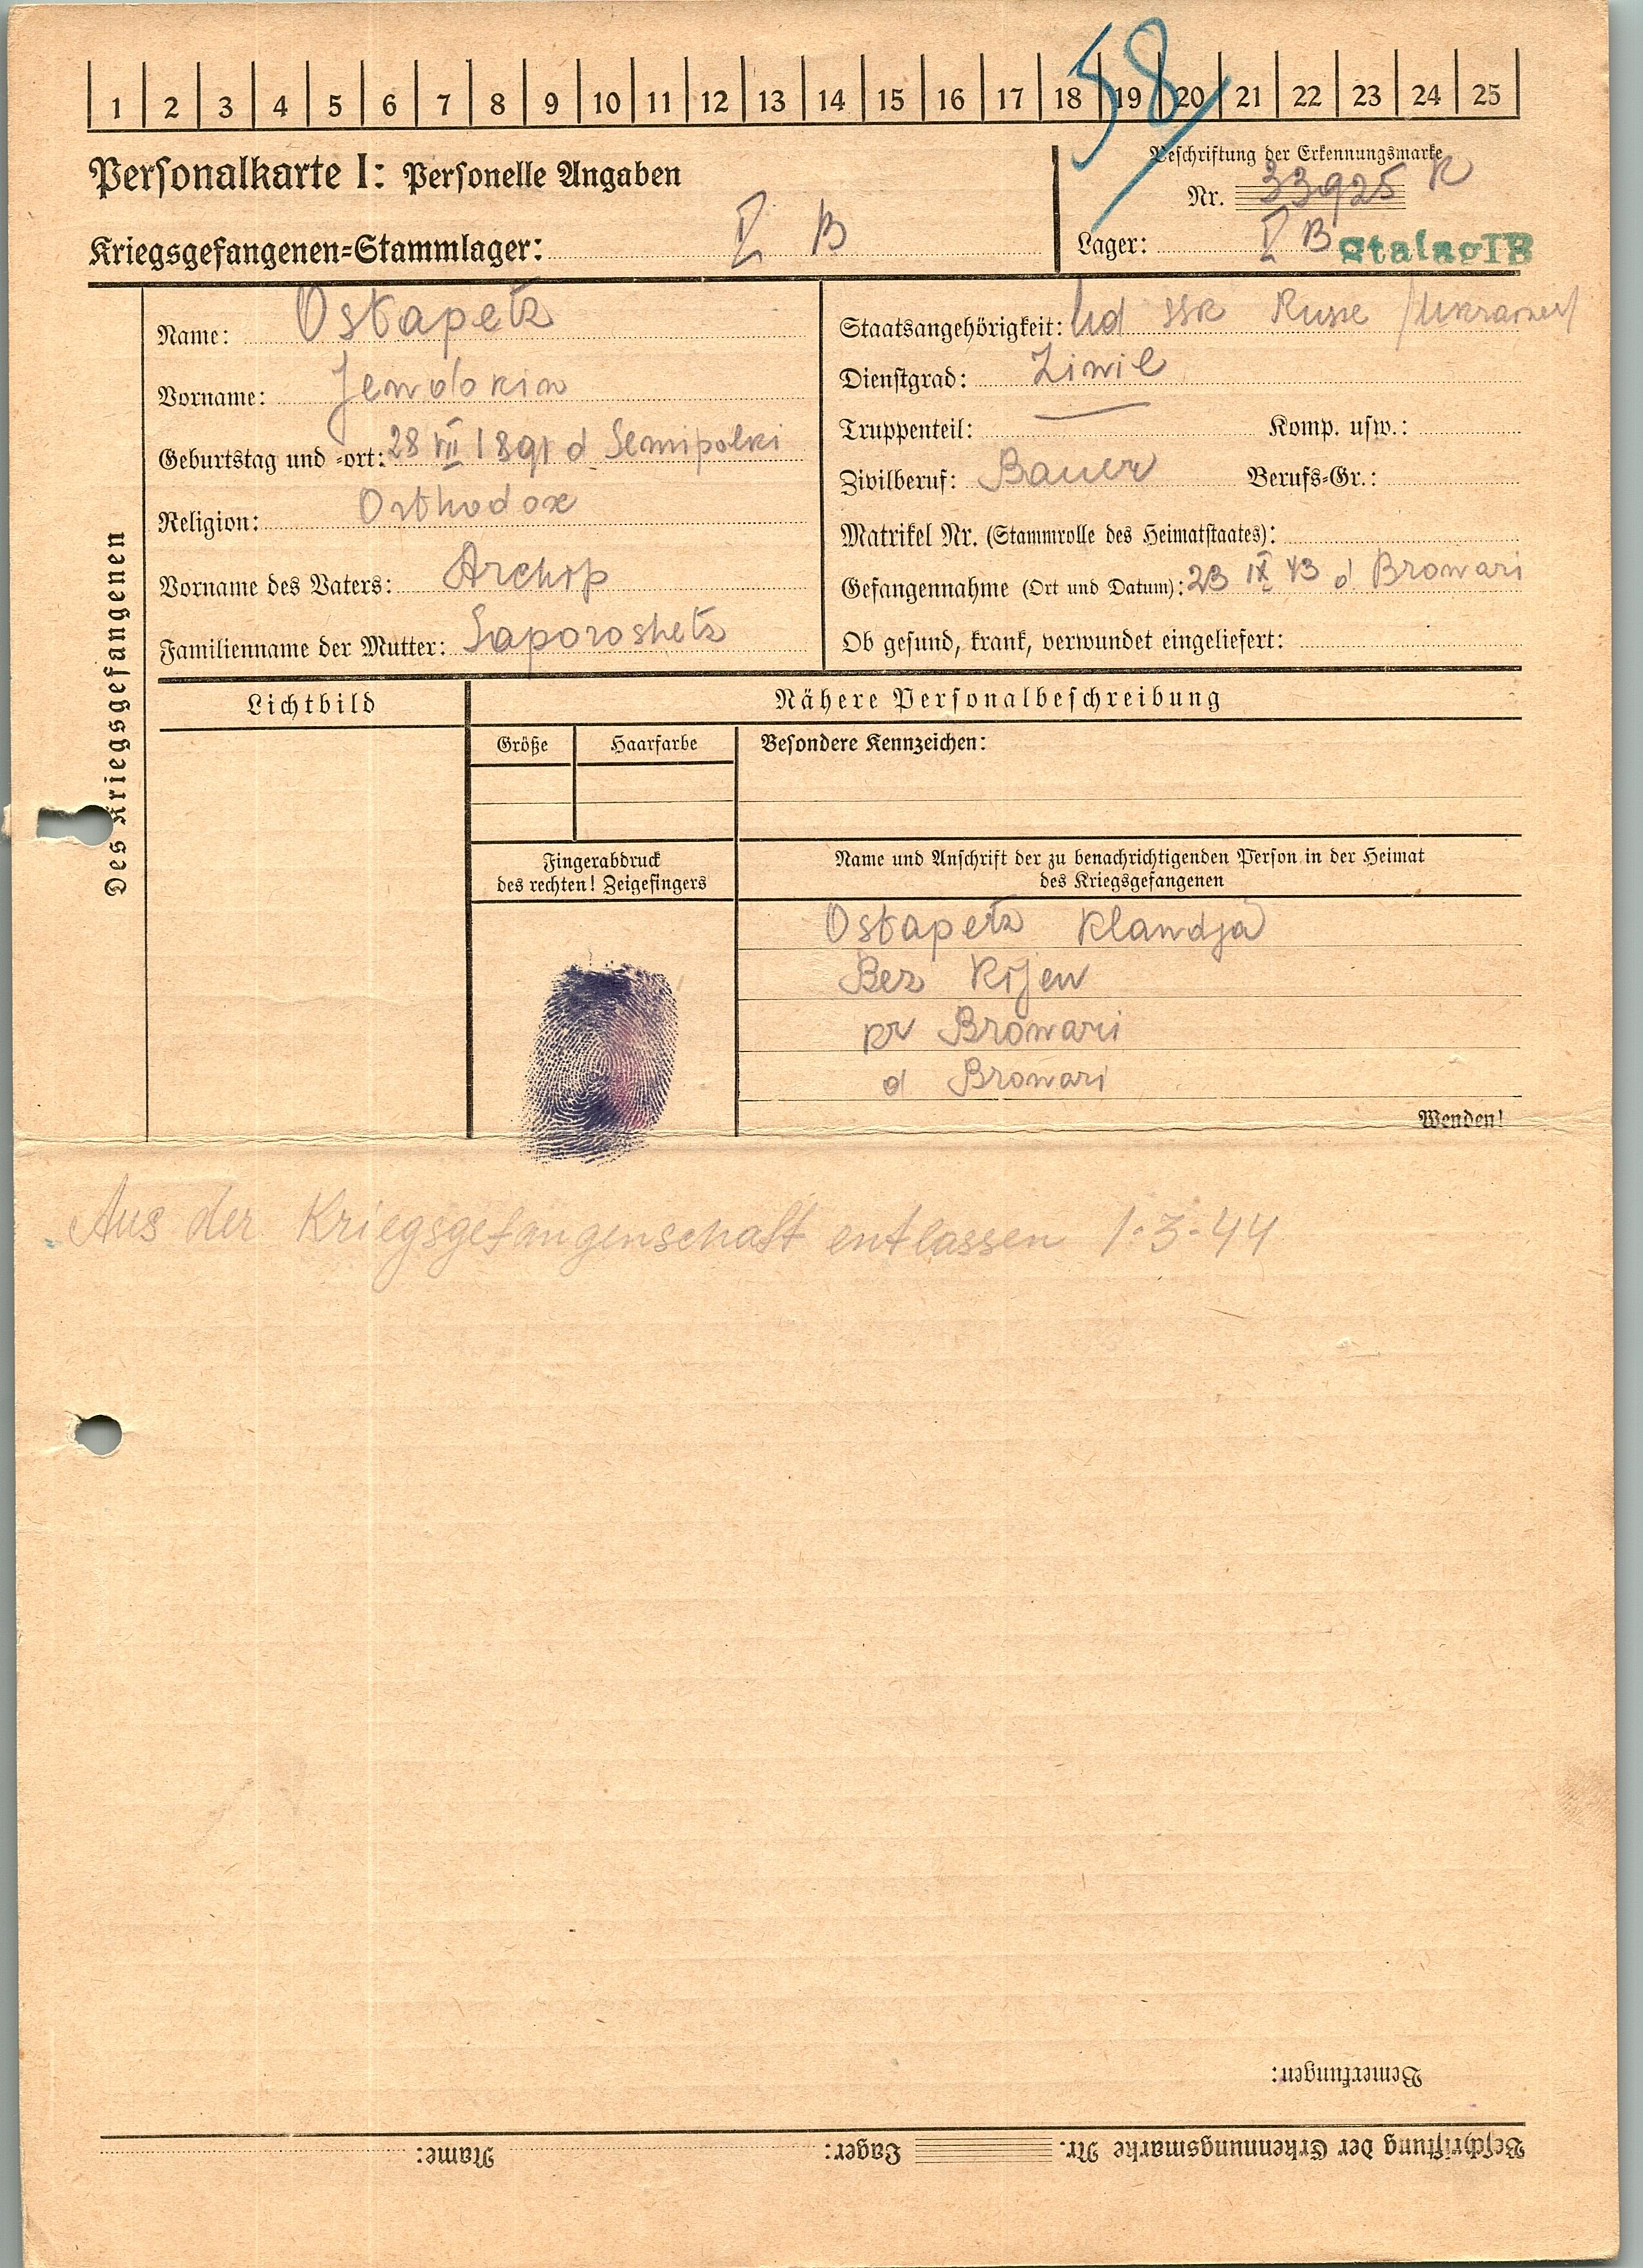 1 2 3 4 5 6 7 8 9 10 11 12 13 14 15 16 17 18 19 20 21 22 23 24 25
58
Personalkarte I: Personelle Angaben
Beschriftung der Erkennungsmarke
Nr. 33925 R
Kriegsgefangenen=Stammlager: I B
Lager: I B Stalag IB
Des Kriegsgefangenen
Name: Ostapetz
Vorname: Jewdokim
Geburtstag und =ort: 28 VII 1891 d Semipolki
Religion: Orthodox
Vorname des Vaters: Archip
Familienname der Mutter: Saporoshetz
Staatsangehörigkeit: Ud SSR Russe /Ukrainer/
Dienstgrad: Ziwil
Truppenteil: Komp. usw.:
Zivilberuf: Bauer Berufs=Gr.:
Matrikel Nr. (Stammrolle des Heimatstaates):
Gefangennahme (Ort und Datum): 23 IX 43 d Browari
Ob gesund, krank, verwundet eingeliefert:
Lichtbild
Nähere Personalbeschreibung
Größe Haarfarbe Besondere Kennzeichen:
Fingerabdruck
des rechten! Zeigefingers
Name und Anschrift der zu benachrichtigenden Person in der Heimat
des Kriegsgefangenen
Ostapetz Klawdja
Bez Kijew
pr Browari
d Browari
Wenden!
Aus der Kriegsgefangenschaft entlassen 1.3.44
Bemerkungen:
Beschriftung der Erkennungsmarke Nr. Lager: Name: